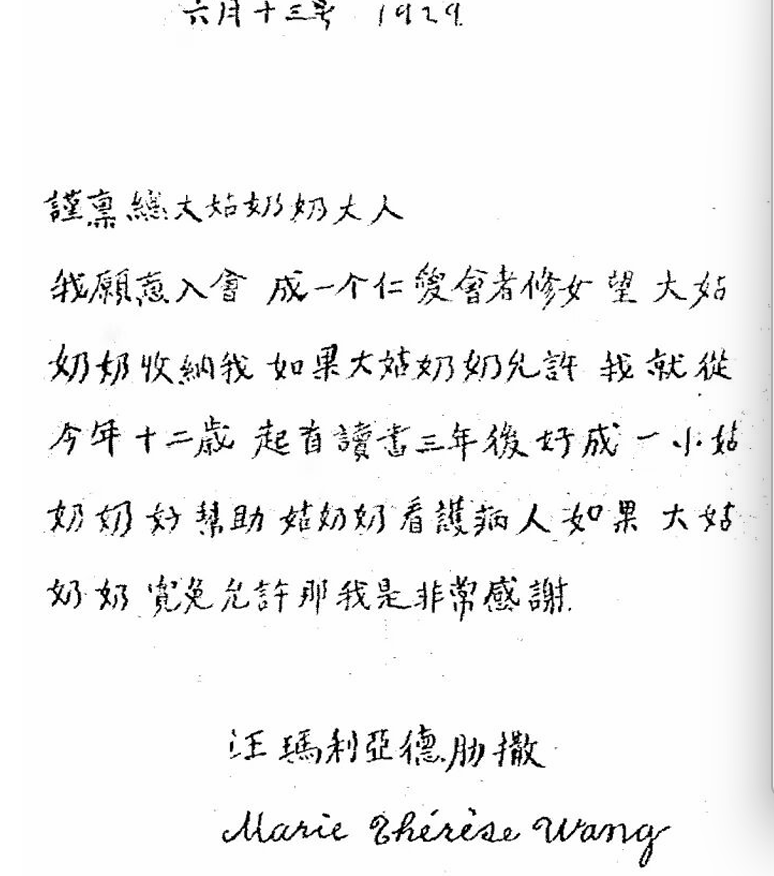 六月十三号 1929
謹禀總大姑奶奶大人
我願意入會 成一个仁愛會者修女 望 大姑
奶奶收納我 如果大姑奶奶允許 我就從
今年十二歲 起首讀書三年後好成一小姑
奶奶好幫助 姑奶奶看護病人如果 大姑
奶奶 寬免允許那我是非常感謝.
汪瑪利亞德肋撒
Marie Thérèse Wang